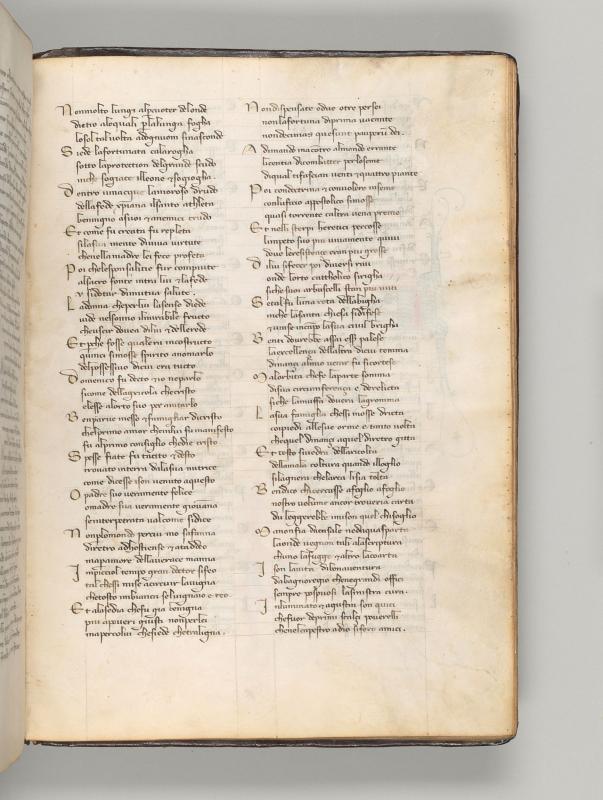 Nonmolto lungi alpcuoter delonde
dietro alequali p̄lalunga fogha
losol taluolta adogniuom sinasconde
Siede lafortunata calarogha
sotto laprotection delgrande scudo
inche sogiace illeone & sogioga.
Dentro uinacque lamoroso drudo
dellafede xp̄iana ilsanto athleta
bennigno asuoi & anemici crudo
Et come fu creata fu repleta
silasua mente diuiua uirtute
chenella madre lei fece profeta
Poi chelesponsalitie fur compiute
alsacro fonte intra lui & lafede
u sidotar dimutua salute.
Ladonna cheperlui lasenso diede
uide nelsonno ilmirabile fructo
cheuscir douea dilui & dellerede
Et pche fosse qualera incostructo
quinci simosse spirito anomarlo
delpossessiuo dicui era tutto
Domenico fu decto & io neparlo
sicome dellagricola checristo
elesse alorto suo per aiutarlo
Benparue messo & famigliar dicristo
chelprimo amor chenlui fu manifesto
fu alprimo consiglio chedie cristo
Spesse fiate fu tacito & desto
trouato interra dalasua nutrice
come dicesse ison uenuto aquesto
O padre suo ueramente felice
omadre sua ueramente giouana
seinterpetrata ualcome sidice
Nonplomondo percui mo saffanna
diretro adhostiense & ataddeo
mapamore dellauerace manna
Inpicciol tempo gran doctor sifeo
tal chessi mise acircuir lauigna
chetosto imbianca seluignaio e reo
Et alasedia chefu gia benigna
piu apoueri giusti nonperlei
mapercolui chesiede chetraligna.
Nondispensare odue otre persei
nonlafortuna diprima uacante
nondecimas que sunt pauperum dei.
Adimando macontro almondo errante
licentia dicombatter perloseme
diqual tifascian uenti & quattro piante
Poi condoctrina & conuolere inseme
conluficio appostolico simosse
quasi torrente caltra uena preme
Et nelli sterpi heretici percosse
limpeto suo piu uiuamente quiui
doue leresistence eran piu grosse
Dilui sifecer poi diuersi riui
onde lorto catholico siriga
siche suoi arbuscelli stan piu uiui
Setal fu luna rota dellabigha
inche lasanta chiesa sidifese
& uinse incampo lasua ciuil brigha
Benti dourebbe assai esser palese
laeccellença dellaltra dicui tomma
dinançi almio uenir fu sicortese
Malorbita chefe laparte somma
disua circumferença e derelicta
siche lamuffa douera lagromma
Lasua famiglia chessi mosse dricta
coipiedi allesue orme e tanto uolta
chequel dinançi aquel diretro gitta
Et tosto siuedra dellaricolta
dellamala coltura quando illoglio
silagnera chelarca lisia tolta
Bendico chicercasse afoglio afoglio
nostro uolume ancor troueria carta
du leggerebbe imison quel chisoglio
Manonfia dacasale nedaquasparta
laonde uegnon tali alascriptura
chuno lafugge & altro lacoarta
Ison lauita dibonauentura
dabagnoregio chenegrandi offici
sempre pospuosi lasinistra cura.
Illuminato & agustin son quici
chefuor deprimi scalçi pouerelli
chenelcapestro adio sifero amici.